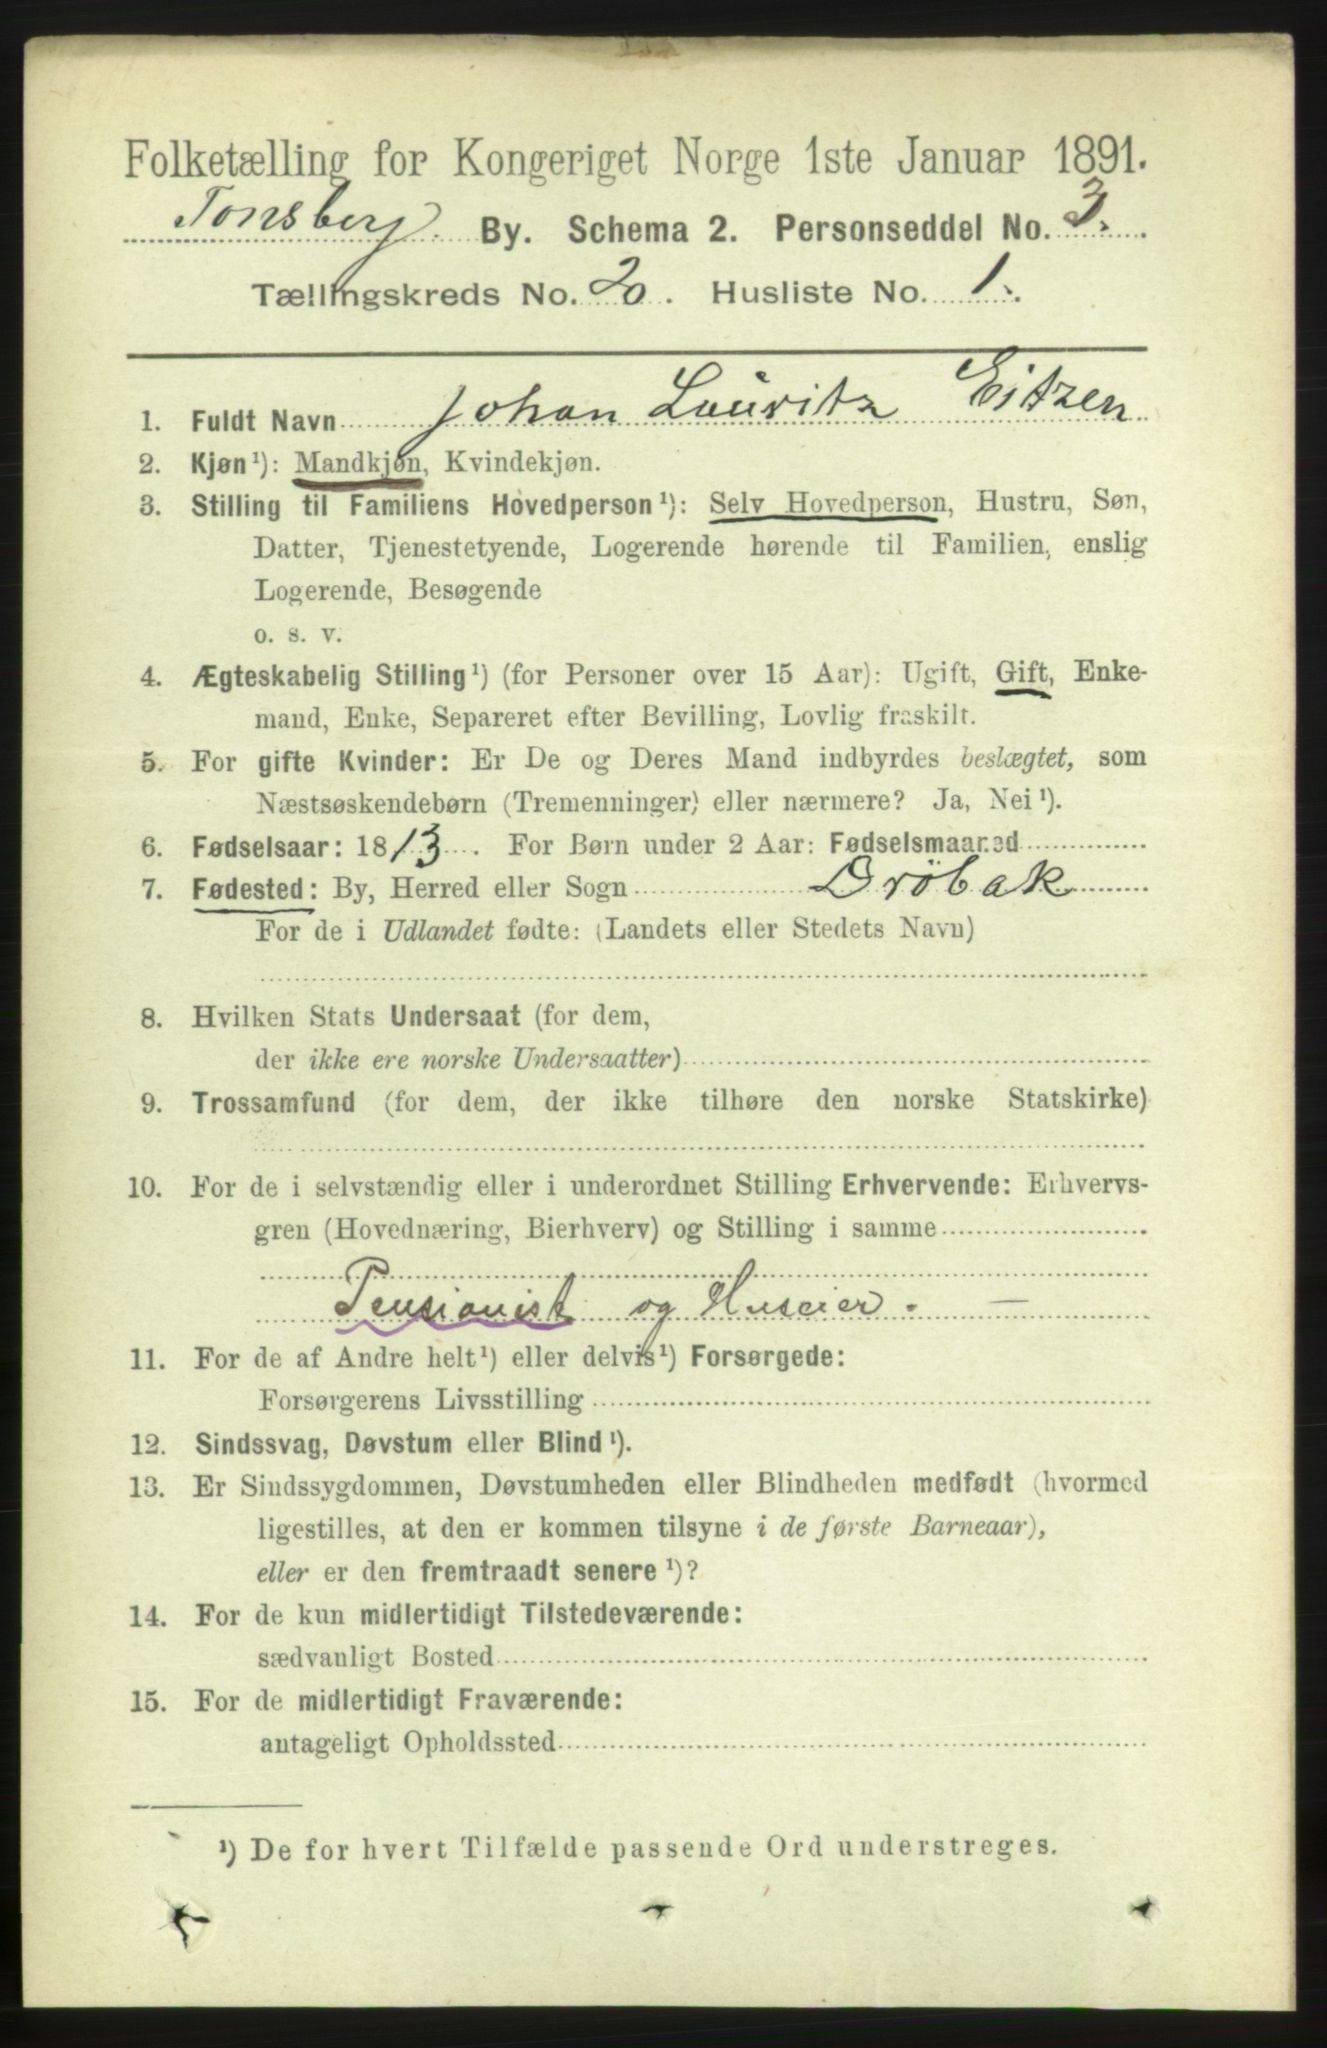 Folketælling for Kongeriget Norge 1ste Januar 1891.
Tonsberg. By. Schema 2. Personseddel No. 3.
Tællingskreds No. 20. Husliste No. 1.
1. Fuldt Navn Johan Lauritz Eitzen
2. Kjøn¹): Mandkjøn, Kvindekjøn.
3. Stilling til Familiens Hovedperson¹): Selv Hovedperson, Hustru, Søn,
Datter, Tjenestetyende, Logerende hørende til Familien, enslig
Logerende, Besøgende
o. s. v.
4. Ægteskabelig Stilling¹) (for Personer over 15 Aar): Ugift, Gift, Enke-
mand, Enke, Separeret efter Bevilling, Lovlig fraskilt.
5. For gifte Kvinder: Er De og Deres Mand indbyrdes beslægtet, som
Næstsøskendebørn (Tremenninger) eller nærmere? Ja, Nei¹).
6. Fødselsaar: 1813. For Børn under 2 Aar: Fødselsmaaned
7. Fødested: By, Herred eller Sogn Dröbak
For de i Udlandet fødte: (Landets eller Stedets Navn)
8. Hvilken Stats Undersaat (for dem,
der ikke ere norske Undersaatter)
9. Trossamfund (for dem, der ikke tilhøre den norske Statskirke)
10. For de i selvstændig eller i underordnet Stilling Erhvervende: Erhvervs-
gren (Hovednæring, Bierhverv) og Stilling i samme
Pensionist og Huseier. —
11. For de af Andre helt¹) eller delvis¹) Forsørgede:
Forsørgerens Livsstilling
12. Sindssvag, Døvstum eller Blind¹).
13. Er Sindssygdommen, Døvstumheden eller Blindheden medfødt (hvormed
ligestilles, at den er kommen tilsyne i de første Barneaar),
eller er den fremtraadt senere¹)?
14. For de kun midlertidigt Tilstedeværende:
sædvanligt Bosted
15. For de midlertidigt Fraværende:
antageligt Opholdssted
¹) De for hvert Tilfælde passende Ord understreges.